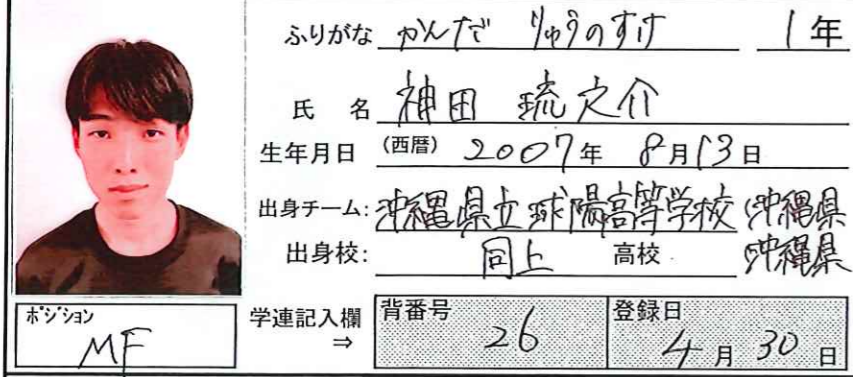 ふりがな かんだ りゅうのすけ 1年
氏 名 神田 琉之介
生年月日 (西暦) 2007年 8月13日
出身チーム: 沖縄県立球陽高等学校 沖縄県
出身校: 同上 高校 沖縄県
ポジション MF
学連記入欄 ⇒
背番号 26
登録日 4月30日